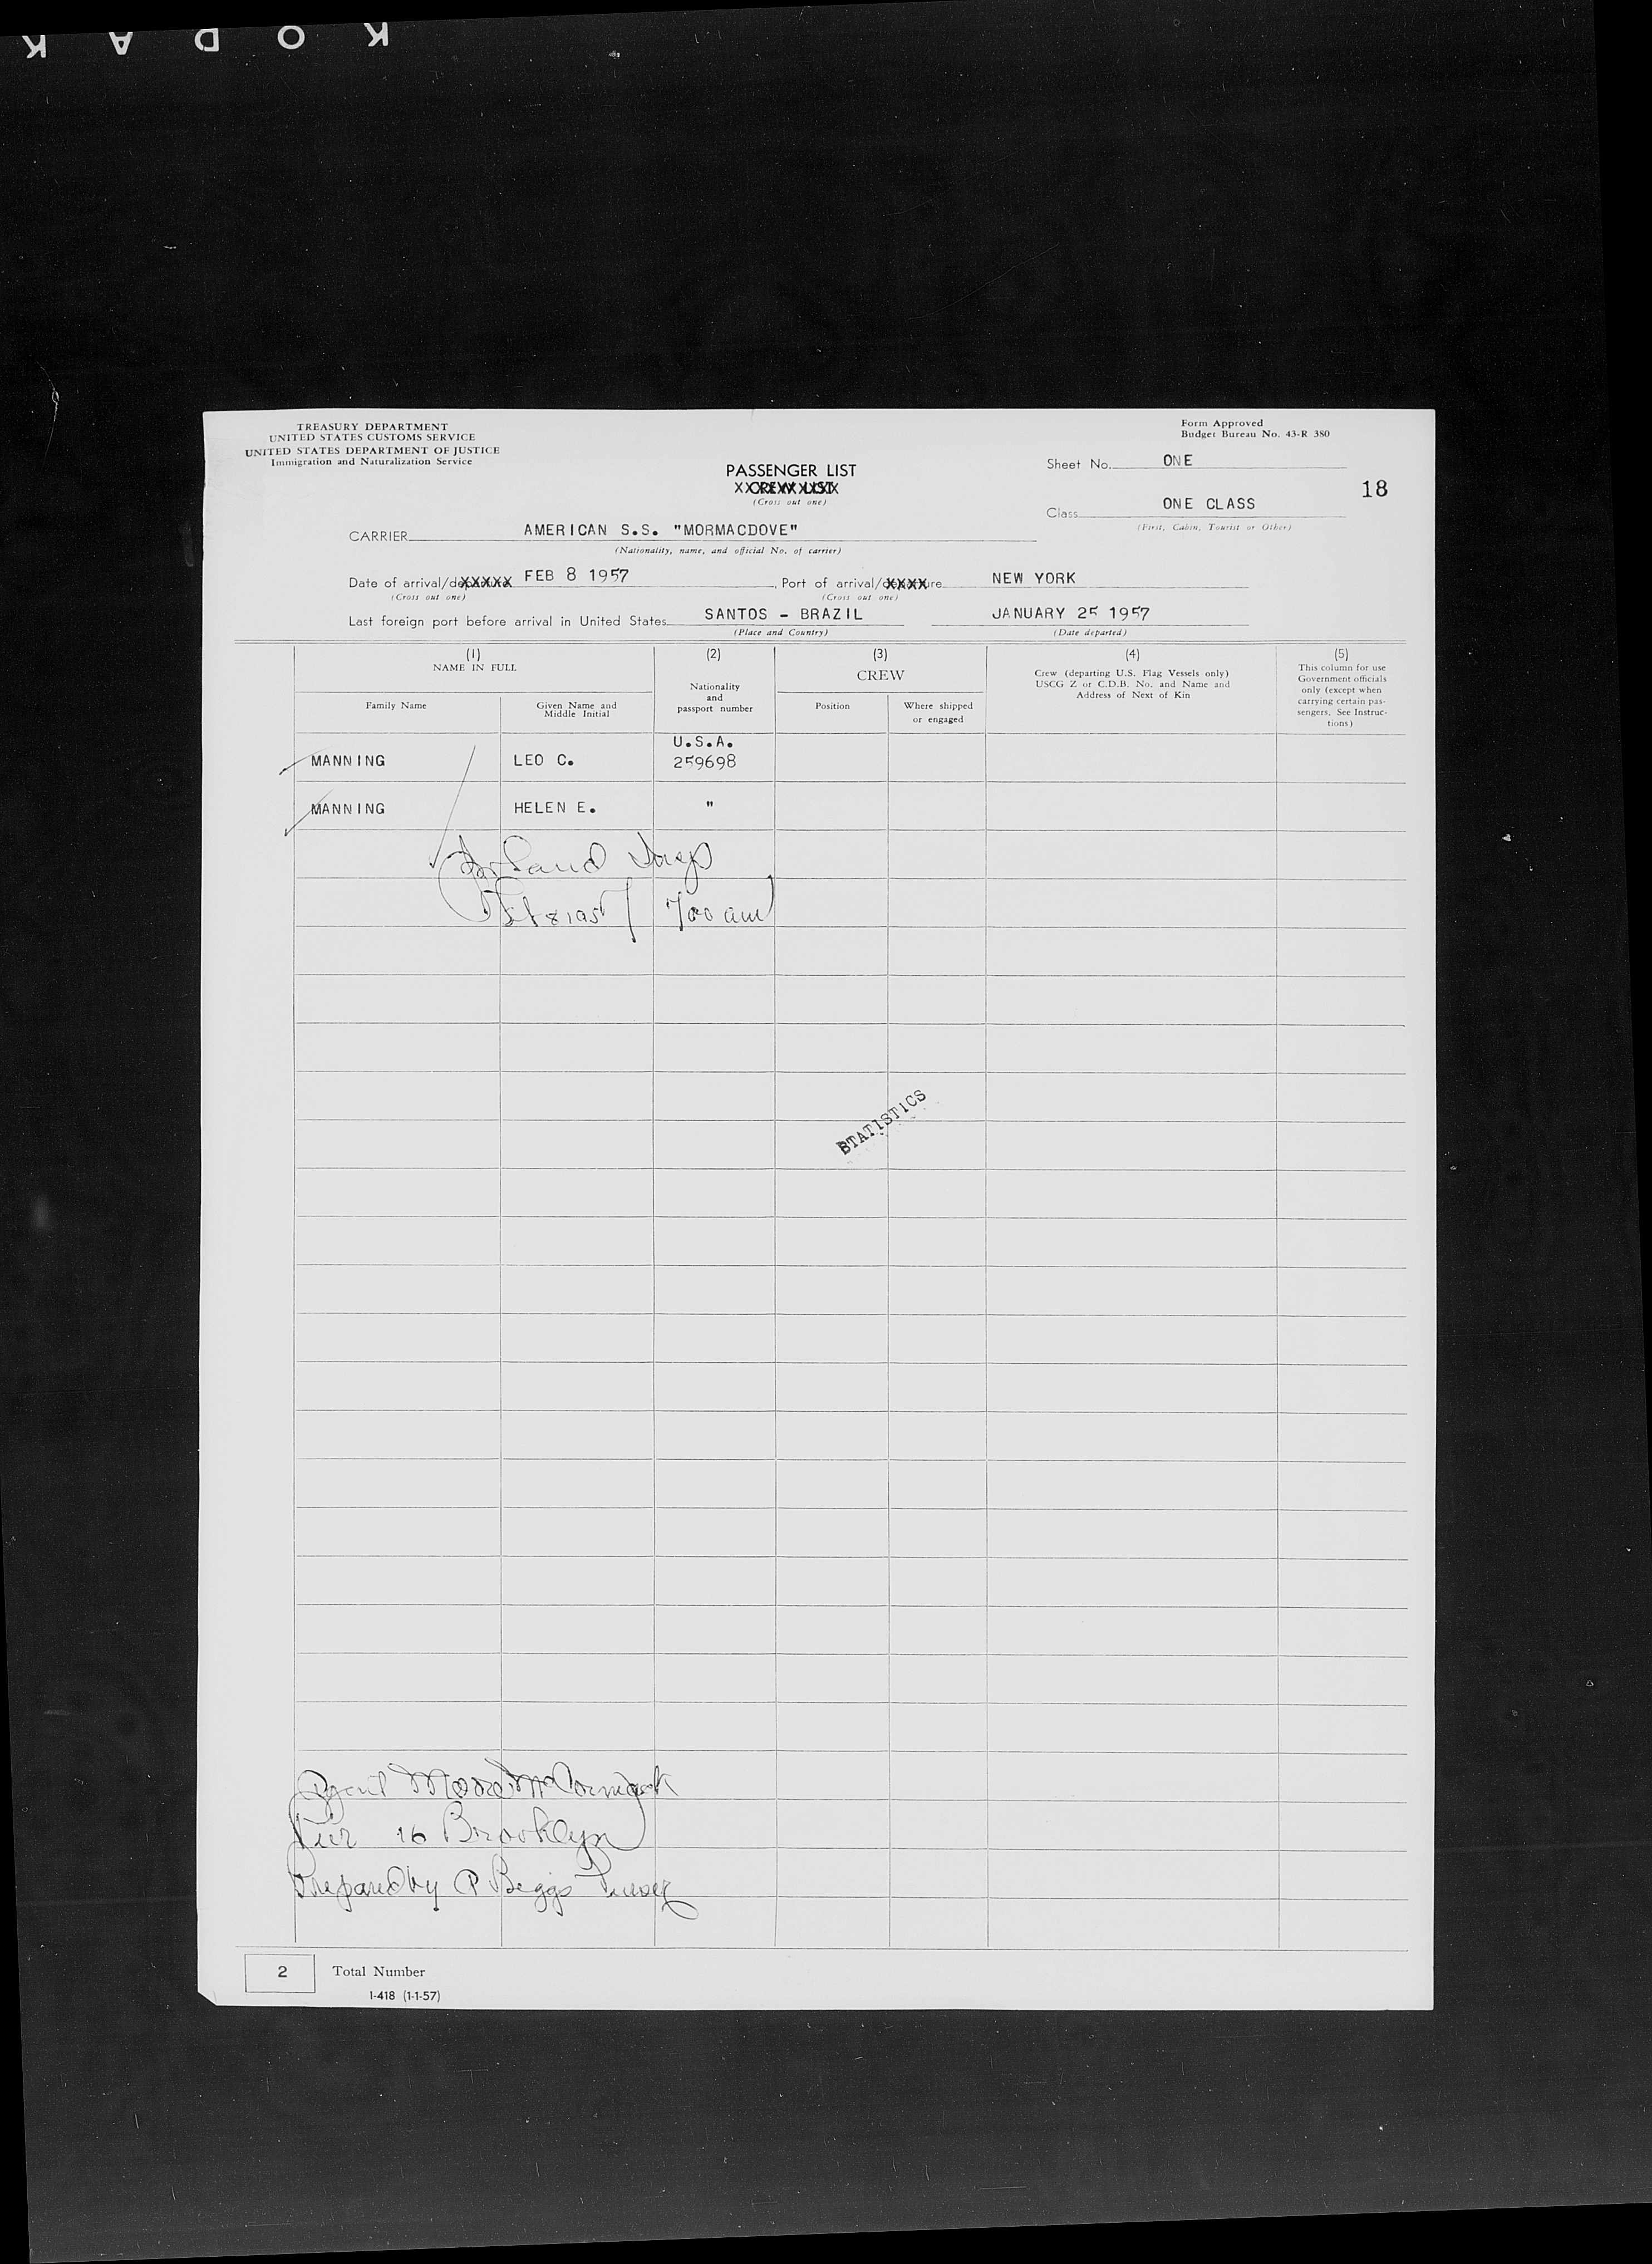 KODAK
TREASURY DEPARTMENT
UNITED STATES CUSTOMS SERVICE
UNITED STATES DEPARTMENT OF JUSTICE
Immigration and Naturalization Service
Form Approved
Budget Bureau No. 43-R 380
Sheet No. ONE
18
PASSENGER LIST
CREW LIST
(Cross out one)
Class ONE CLASS
(First, Cabin, Tourist or Other)
CARRIER AMERICAN S.S. "MORMACDOVE"
(Nationality, name, and official No. of carrier)
Date of arrival/departure FEB 8 1957, Port of arrival/departure NEW YORK
(Cross out one) (Cross out one)
Last foreign port before arrival in United States SANTOS - BRAZIL JANUARY 25 1957
(Place and Country) (Date departed)
(1) (2) (3) (4) (5)
NAME IN FULL
Family Name
Given Name and
Middle Initial
Nationality
and
passport number
CREW
Position
Where shipped
or engaged
Crew (departing U.S. Flag Vessels only)
USCG Z or C.D.B. No. and Name and
Address of Next of Kin
This column for use
Government officials
only (except when
carrying certain pas-
sengers. See Instruc-
tions)
U.S.A.
MANNING LEO C. 259698
MANNING HELEN E. "
700 am
STATISTICS
Agent Moore McCormack
Pier 16 Brooklyn
Prepared by P Beggs Purser
2 Total Number
I-418 (1-1-57)